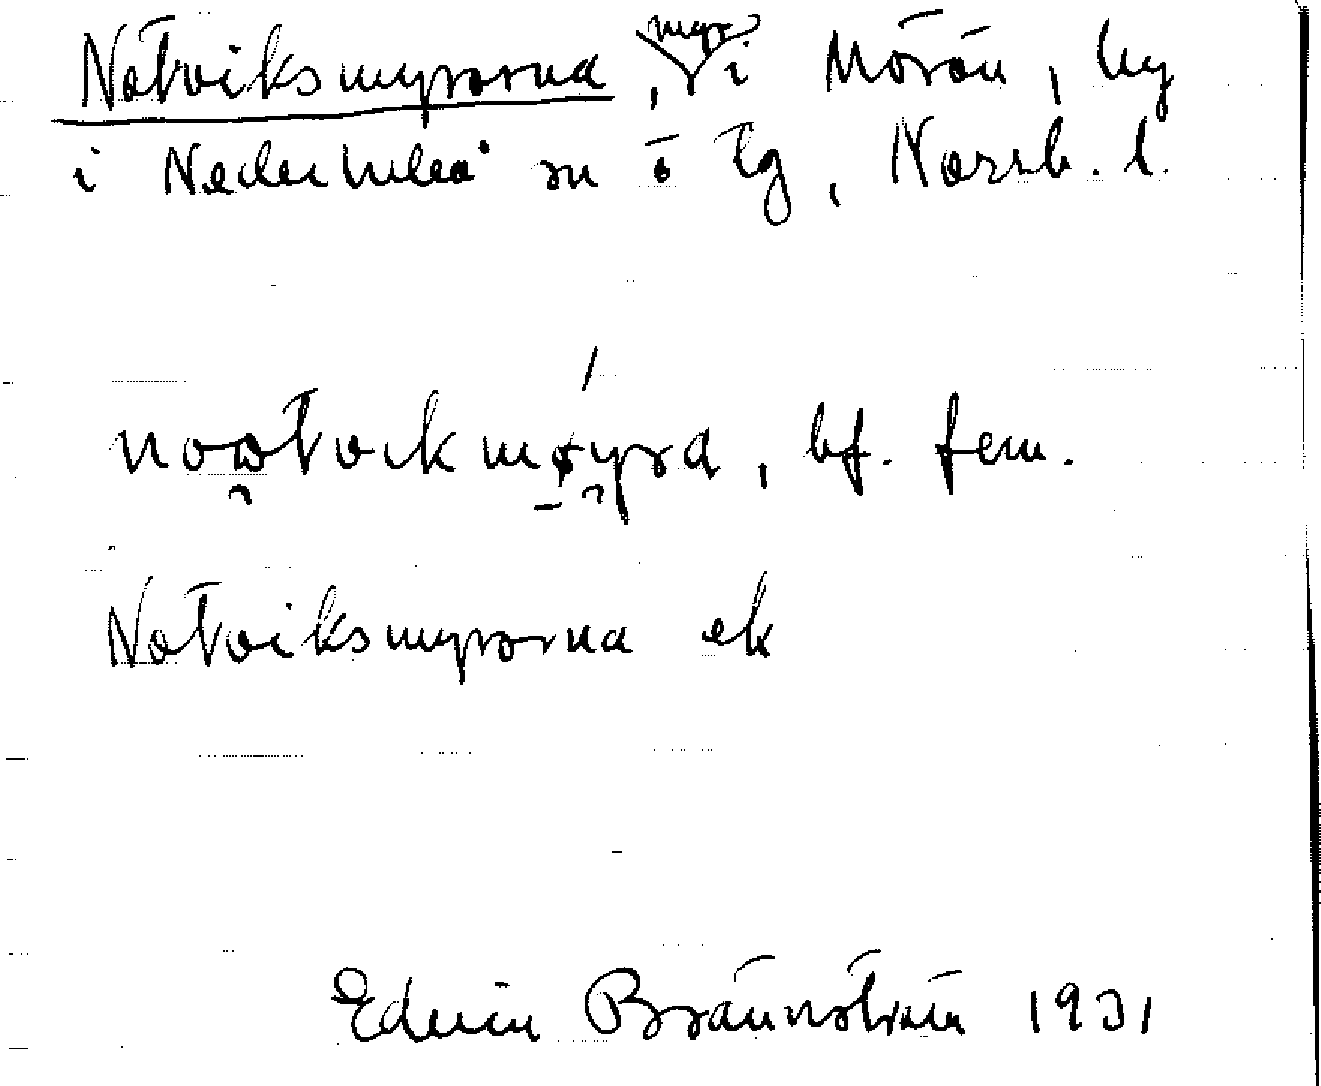 Notviksmyrorna, myr i Mörön, by
i Nederluleå sn o tg, Norrb. l.
nowtvɩkmøyra, bf. fem.
Notviksmyrorna ek
Edvin Brännström 1931